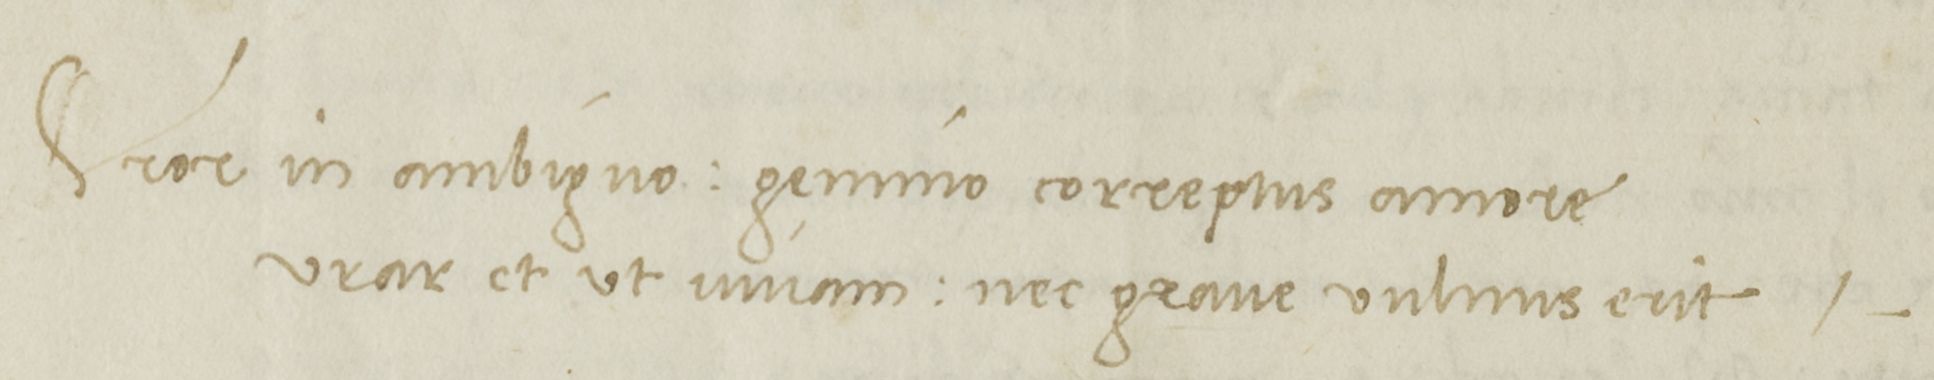 Vror in ambiguo : gemino correptus amore
vrar et vt iuuam : nec graue vulnus erit /-